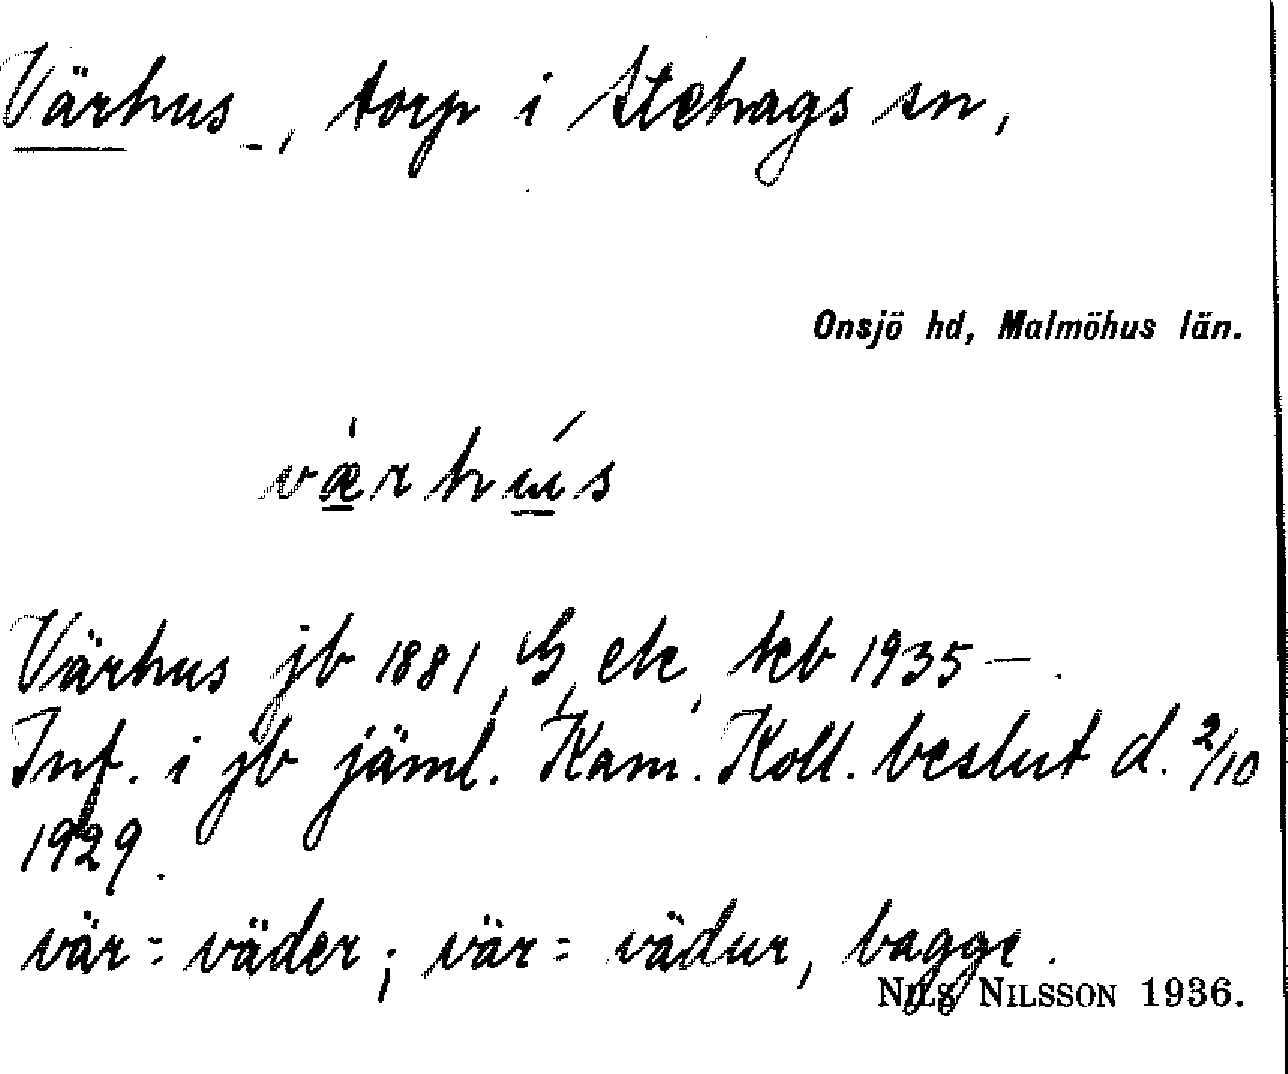 Värhus -, torp i Stehags sn,
Onsjö hd, Malmöhus län.
værhus
Värhus jb 1881, G, ek, kcb 1935 —.
Inf. i jb jäml. Kam. Koll. beslut d. 2/10
1929.
vär = väder; vär = vädur, bagge.
NILS NILSSON 1936.